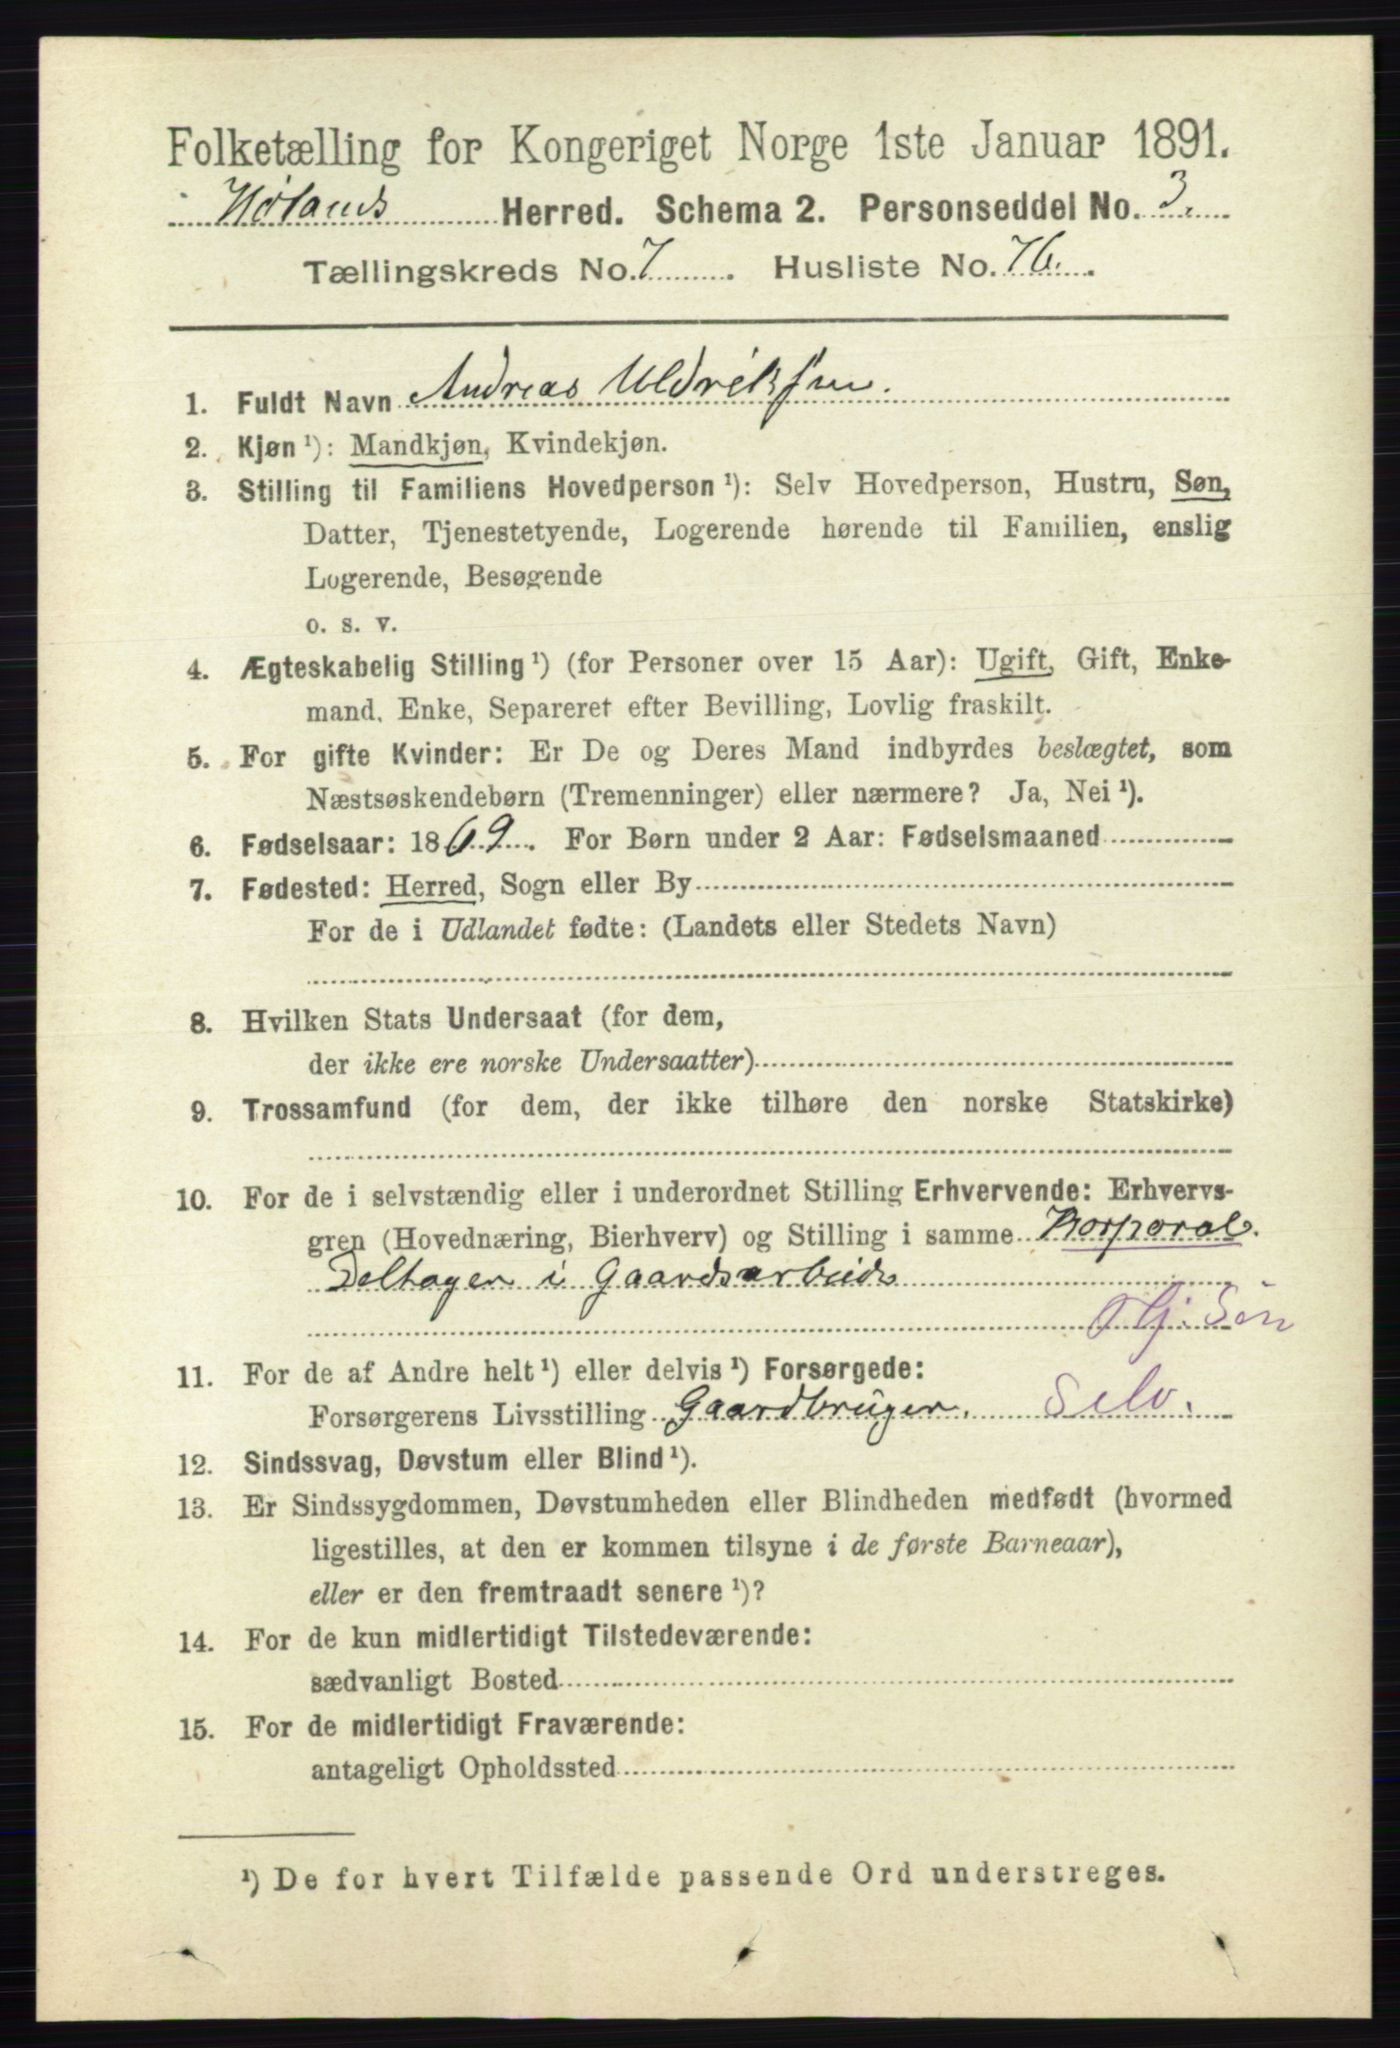 Folketælling for Kongeriget Norge 1ste Januar 1891.
Hølands Herred. Schema 2. Personseddel No. 3.
Tællingskreds No. 7. Husliste No. 76.
1. Fuldt Navn Andreas Uldriksen.
2. Kjøn ¹): Mandkjøn, Kvindekjøn.
3. Stilling til Familiens Hovedperson ¹): Selv Hovedperson, Hustru, Søn,
Datter, Tjenestetyende, Logerende hørende til Familien, enslig
Logerende, Besøgende
o. s. v.
4. Ægteskabelig Stilling ¹) (for Personer over 15 Aar): Ugift, Gift, Enke-
mand, Enke, Separeret efter Bevilling, Lovlig fraskilt.
5. For gifte Kvinder: Er De og Deres Mand indbyrdes beslægtet, som
Næstsøskendebørn (Tremenninger) eller nærmere? Ja, Nei ¹).
6. Fødselsaar: 1869. For Børn under 2 Aar: Fødselsmaaned
7. Fødested: Herred, Sogn eller By
For de i Udlandet fødte: (Landets eller Stedets Navn)
8. Hvilken Stats Undersaat (for dem,
der ikke ere norske Undersaatter)
9. Trossamfund (for dem, der ikke tilhøre den norske Statskirke)
10. For de i selvstændig eller i underordnet Stilling Erhvervende: Erhvervs-
gren (Hovednæring, Bierhverv) og Stilling i samme Korporal.
Deltager i Gaardsarbeide
Hj. Søn
11. For de af Andre helt ¹) eller delvis ¹) Forsørgede:
Forsørgerens Livsstilling Gaardbruger. Selv.
12. Sindssvag, Døvstum eller Blind ¹).
13. Er Sindssygdommen, Døvstumheden eller Blindheden medfødt (hvormed
ligestilles, at den er kommen tilsyne i de første Barneaar),
eller er den fremtraadt senere ¹)?
14. For de kun midlertidigt Tilstedeværende:
sædvanligt Bosted
15. For de midlertidigt Fraværende:
antageligt Opholdssted
¹) De for hvert Tilfælde passende Ord understreges.